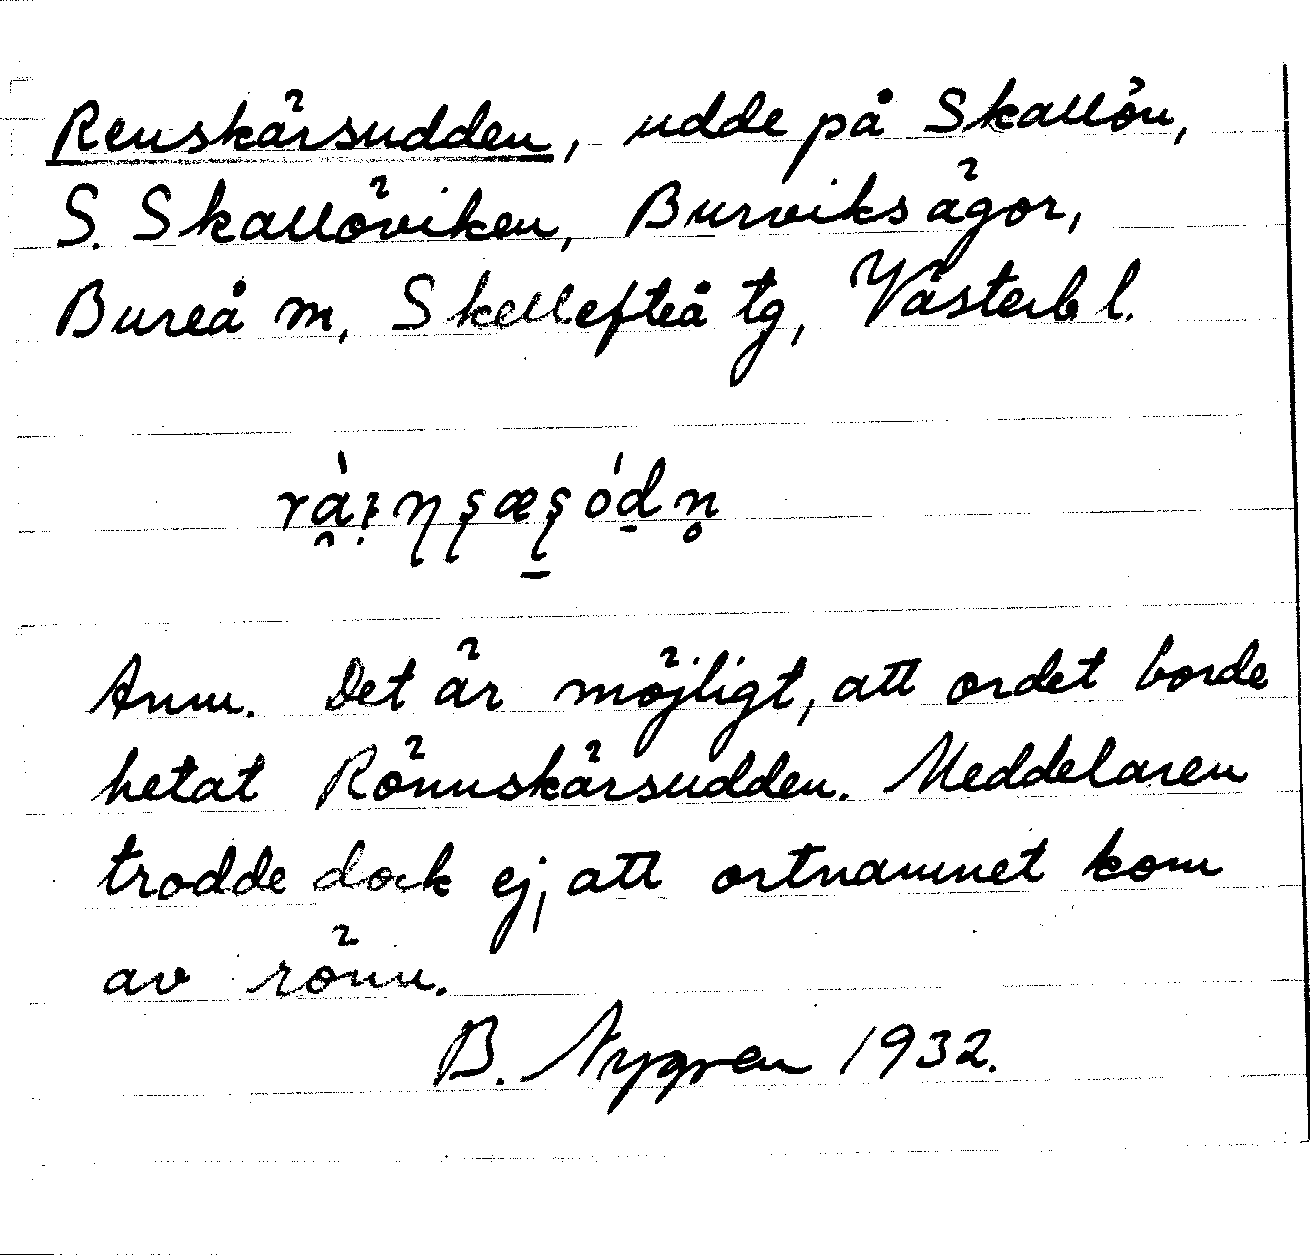 Renskärsudden, udde på Skallön,
S. Skallöviken, Burviks ägor,
Bureå m, Skellefteå tg, Västerb l.
Anm. Det är möjligt, att ordet borde
hetat Rönnskärsudden. Meddelaren
trodde dock ej, att ortnamnet kom
av rönn.
B. Nygren 1932.